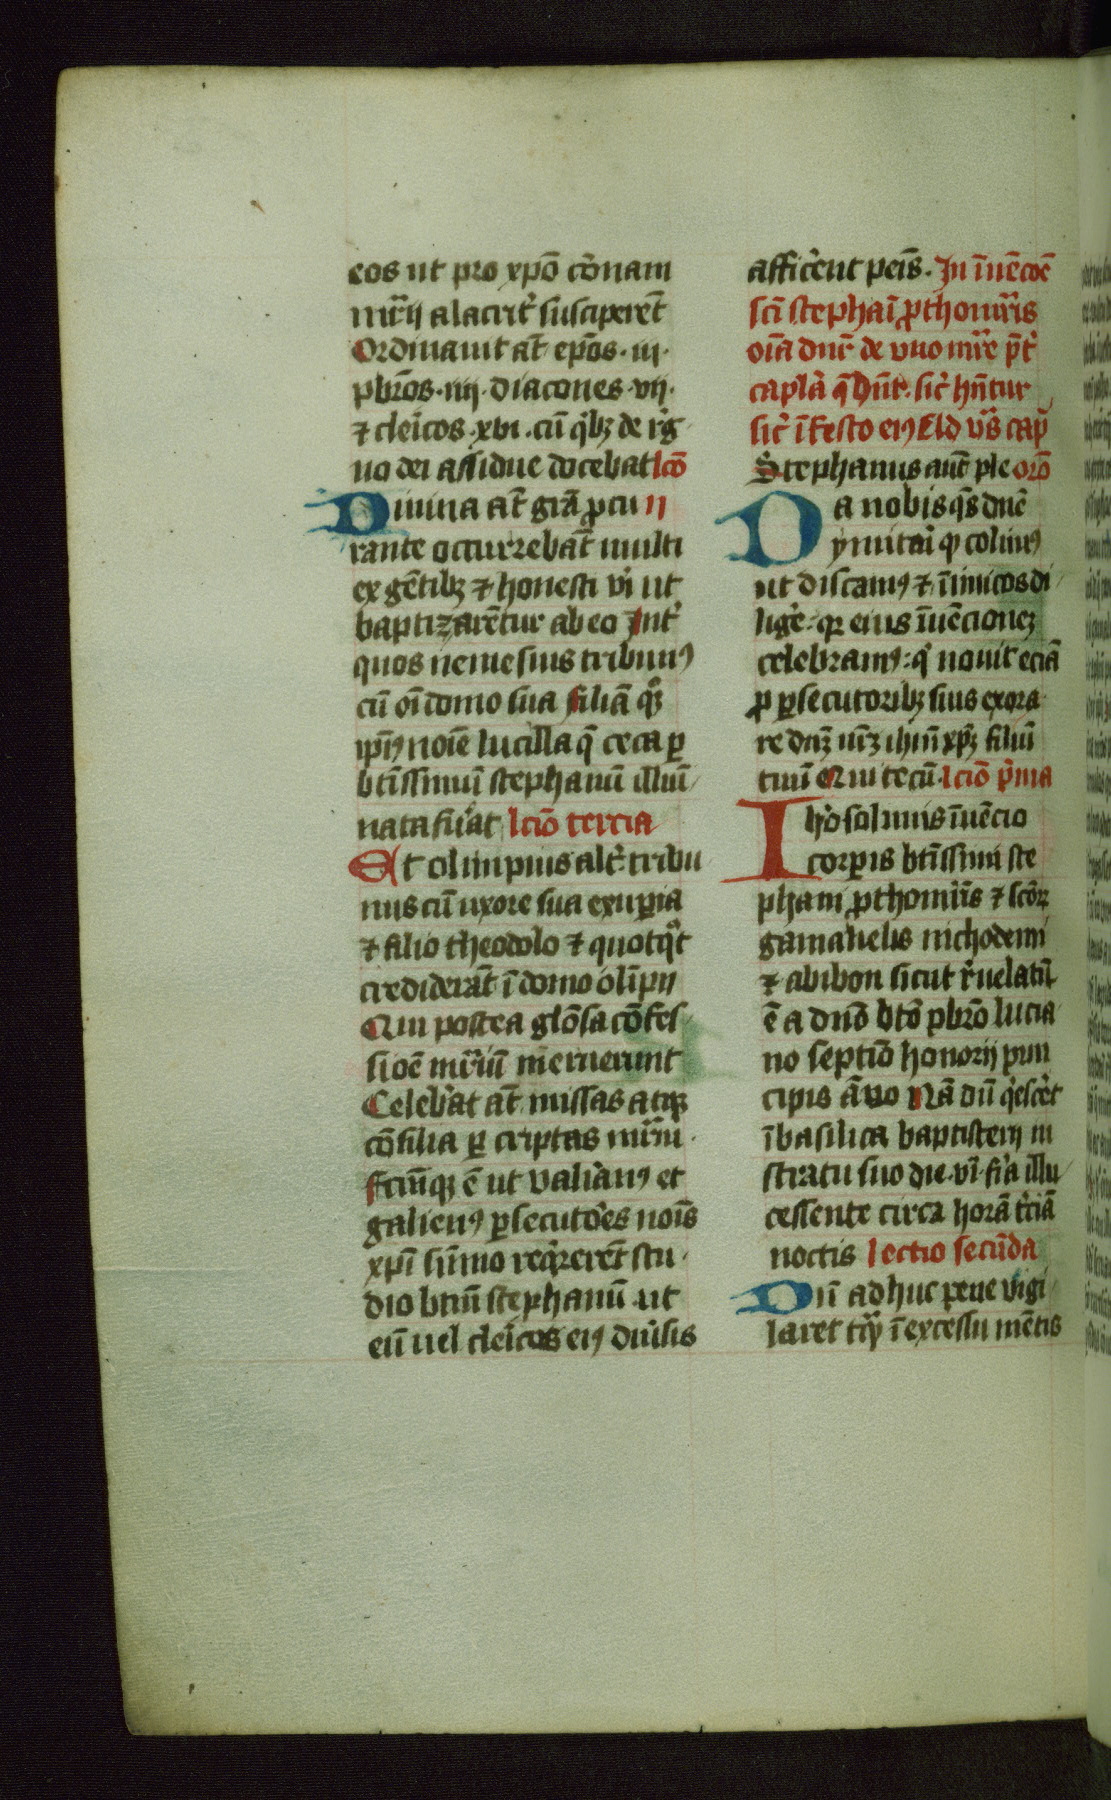 eos ut pro xpō cōnam
mr̄ij alacrit᷑ susciperēt
Ordinauit at̄ ep̄os · iij ·
pbr̄os · iiij · diacones · vij ·
⁊ clēicos · xvi · cū qⁱbꝫ de rᷓg
no dei assidue docebat lcō
Diuina at̄ gr̄a ꝓcu ij
rante occurrebāt multi
ex gētibꝫ ⁊ honesti vⁱi ut
baptizarētur ab eo Int᷑
quos nemesius tribunꝰ
cū oī domo sua filiā qꝫ
ip̄iꝰ noīe lucilla q̄ ceca ꝑ
btīssimū stephanū illuī
nata fūat lciō tercia
At olimpius alt᷑ tribu
nus cū uxore sua exupia
⁊ filio theodolo ⁊ quotqͦt
crediderāt ī domo olīpij
Qui postea glōsa cōfes
sioē mr̄iū meruerunt
Celeb᷑at at̄ missas atqꝫ
cōsilia ꝑ criptas mr̄iū
Fcm̄qꝫ ē ut valiānꝰ et
galienꝰ ꝑsecutōes noīs
xpī sūmo reqⁱrerēt stu
dio btm̄ stephanū ut
eū uel clēicos eiꝰ diūsis
affic᷑ent peīs · In īuēcōē
scī stephaī ꝓthomr̄is
oīa dn̄r de vno mr̄e p̄t᷑
capl᷑a q̄ dn̄r · sic᷑ hn̄tur
sic᷑ ī festo eiꝰ Eld v̄s cap᷑
Stephanus aut̄ ple orō
Da nobis qs̄ dn̄e
ymitaⁱ qꝫ colimꝰ
ut discamꝰ ⁊ īimicos di
lig᷑e · qꝛ eius īuēcionez
celebramꝰ · qⁱ nouit eciā
ꝓ ꝑsecutoribꝫ suis exora
re dnꝫ nr̄ꝫ ihm̄ xp̄ꝫ filiū
tuū Qui tecū · lciō p̄ma
Ih᷑osolimis īuēcio
corꝑis btīssimi ste
phani ꝓthomr̄is ⁊ scōꝝ
gamalielis nichodemi
⁊ abibon sicut r᷑uelatū
ē a dn̄o btō pbr̄o lucia
no septīo honorij prin
cipis āno Nā dū qⁱesc᷑et
ī basilica baptisterij in
stratu suo die · vi · fⁱa illu
cessente circa horā t᷑ciā
noctis lectio secūda
Dū adhuc pene vigi
laret ī excessu mētis